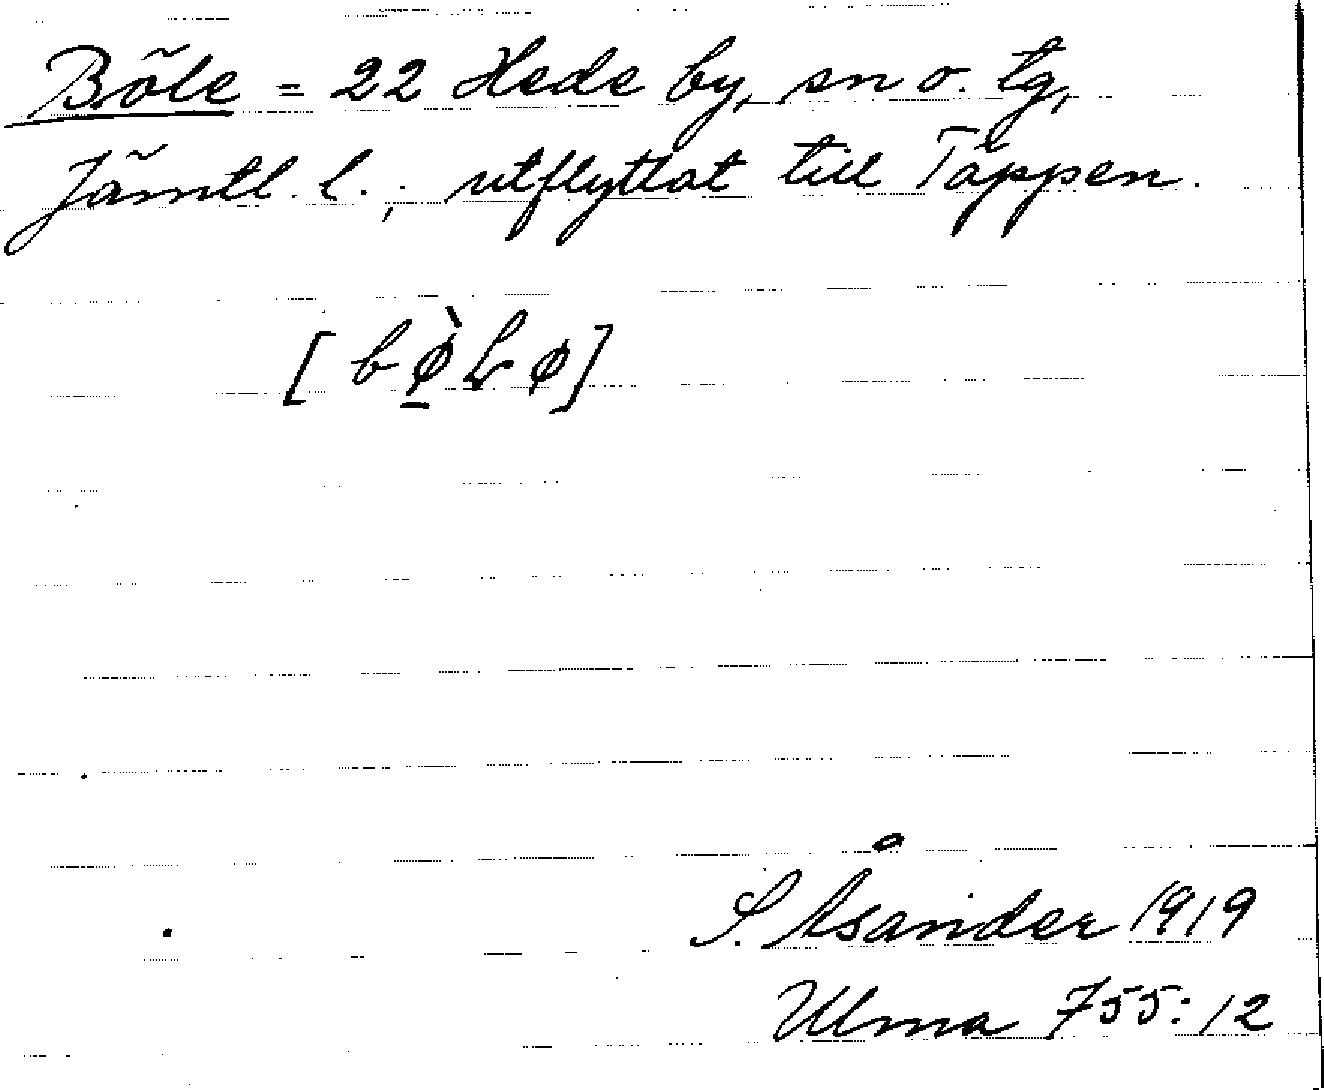 Böle = 22 Hede by, sn o. tg,
Jämtl. l., utflyttat till Täppen.
[bø̱̀Lø]
S. Åsander 1919
Ulma 755:12